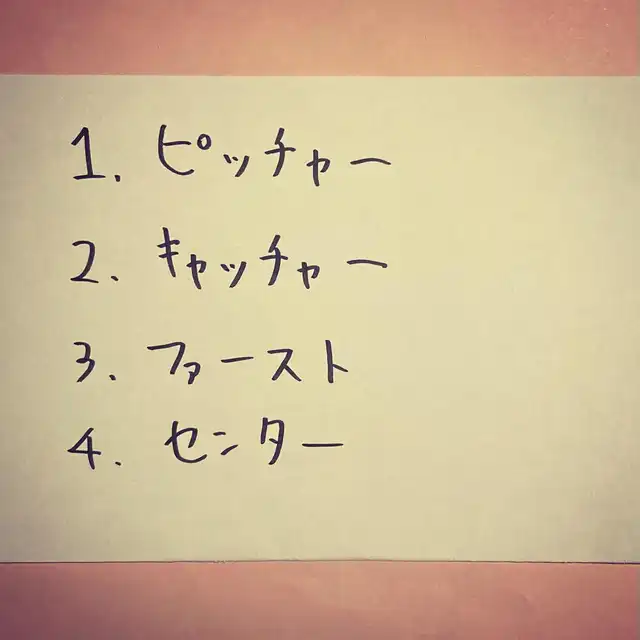 1. ピッチャー
2. キャッチャー
3. ファースト
4. センター